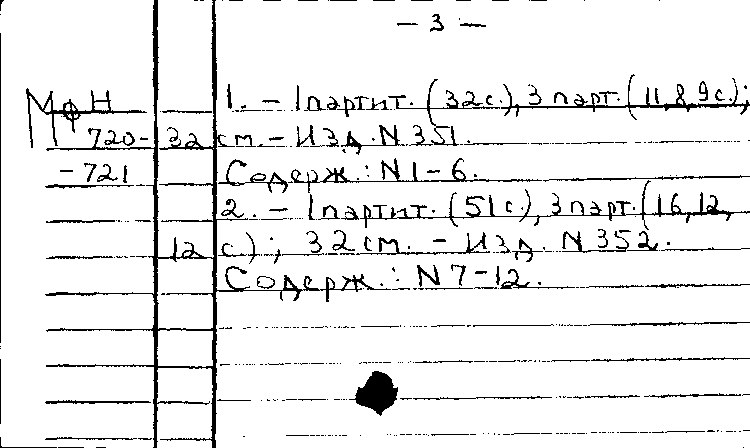 — 3 —
МфН 1. – 1 партит. (32 с.), 3 парт. (11, 8, 9 с.);
720- 32 см. – Изд. N 351.
-721 Содерж.: N 1–6.
2. – 1 партит. (51 с.), 3 парт. (16, 12,
12 с.); 32 см. – Изд. N 352.
Содерж.: N 7–12.